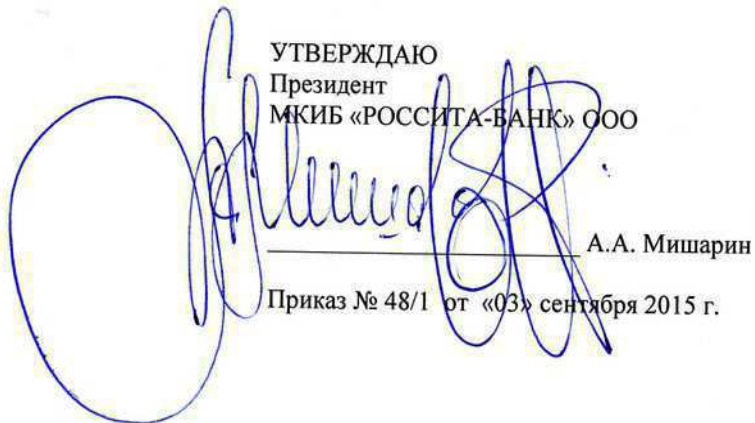 УТВЕРЖДАЮ
Президент
МКИБ «РОССИТА-БАНК» ООО
А.А. Мишарин
Приказ № 48/1 от «03» сентября 2015 г.